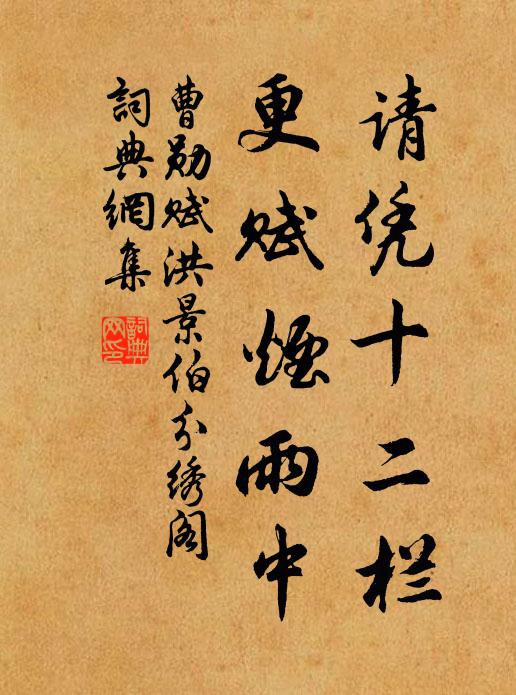 请凭十二栏
更赋煙雨中
曹勋赋洪景伯分绣阁
詞典網集